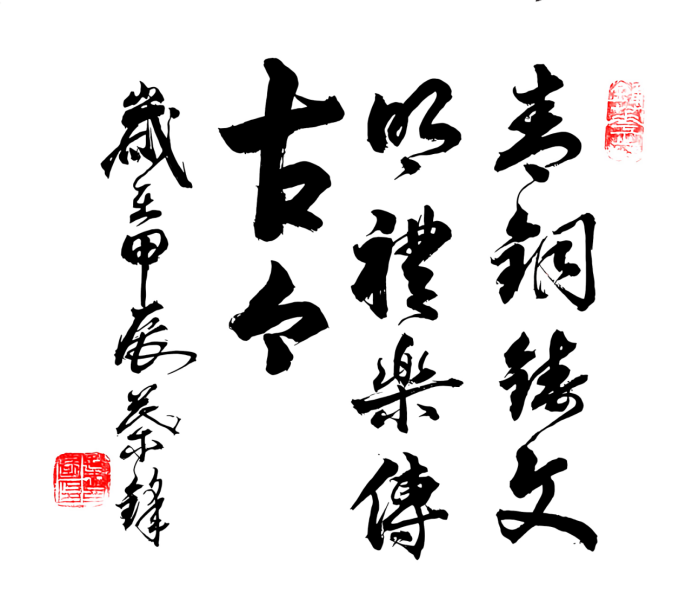 青銅鑄文
明禮樂傳
古今
歲在甲辰蔡鋒